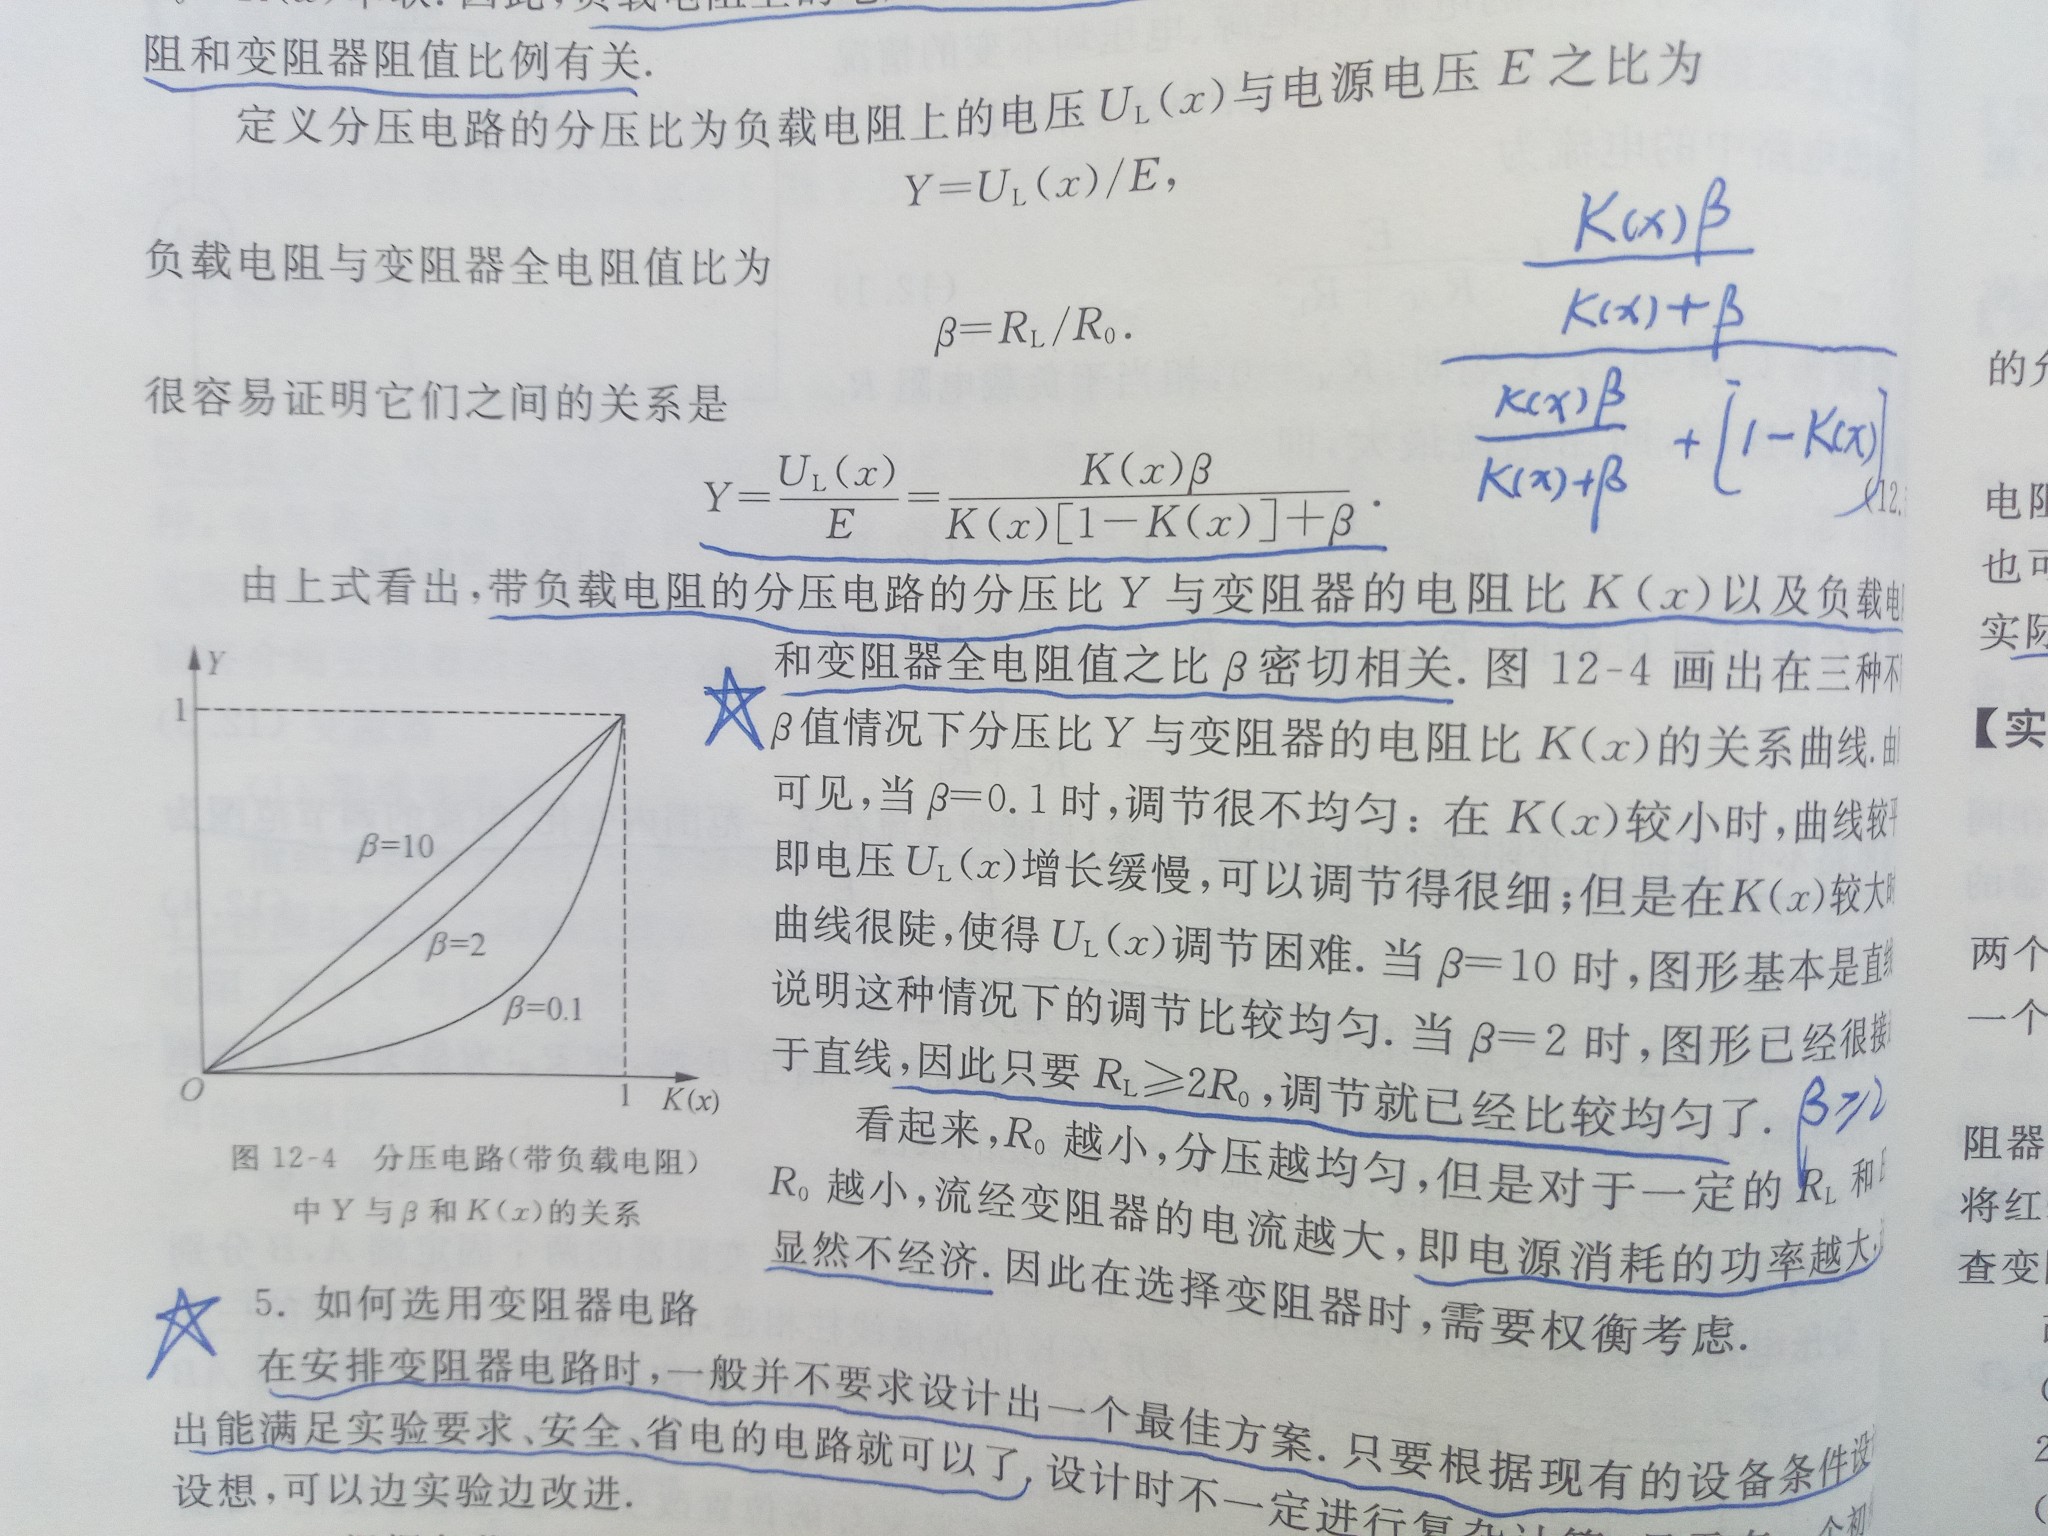 阻和变阻器阻值比例有关.
定义分压电路的分压比为负载电阻上的电压 U_L(x)与电源电压 E 之比为
Y=U_L(x)/E,
负载电阻与变阻器全电阻值比为
β=R_L/R_0.
很容易证明它们之间的关系是
Y=U_L(x)/E=K(x)β/(K(x)[1-K(x)]+β).
(12.
K(x)β
K(x)+β
K(x)β
K(x)+β
+[1-K(x)]
由上式看出,带负载电阻的分压电路的分压比 Y 与变阻器的电阻比 K(x)以及负载电
和变阻器全电阻值之比 β 密切相关. 图 12-4 画出在三种不
β 值情况下分压比 Y 与变阻器的电阻比 K(x)的关系曲线.
可见,当 β=0.1 时,调节很不均匀:在 K(x)较小时,曲线较平
即电压 U_L(x)增长缓慢,可以调节得很细;但是在K(x)较大时
曲线很陡,使得 U_L(x)调节困难. 当 β=10 时,图形基本是直线
说明这种情况下的调节比较均匀. 当 β=2 时,图形已经很接
于直线,因此只要 R_L≥2R_0,调节就已经比较均匀了.
β≥2
看起来,R_0 越小,分压越均匀,但是对于一定的 R_L 和
R_0 越小,流经变阻器的电流越大,即电源消耗的功率越大,
显然不经济. 因此在选择变阻器时,需要权衡考虑.
Y
1
β=10
β=2
β=0.1
O
1
K(x)
图 12-4 分压电路(带负载电阻)
中 Y 与 β 和 K(x)的关系
5. 如何选用变阻器电路
在安排变阻器电路时,一般并不要求设计出一个最佳方案. 只要根据现有的设备条件设
出能满足实验要求、安全、省电的电路就可以了. 设计时不一定进行复杂计算
设想,可以边实验边改进.
的分
电阻
也可
实际
【实
两个
一个
阻器
将红
查变